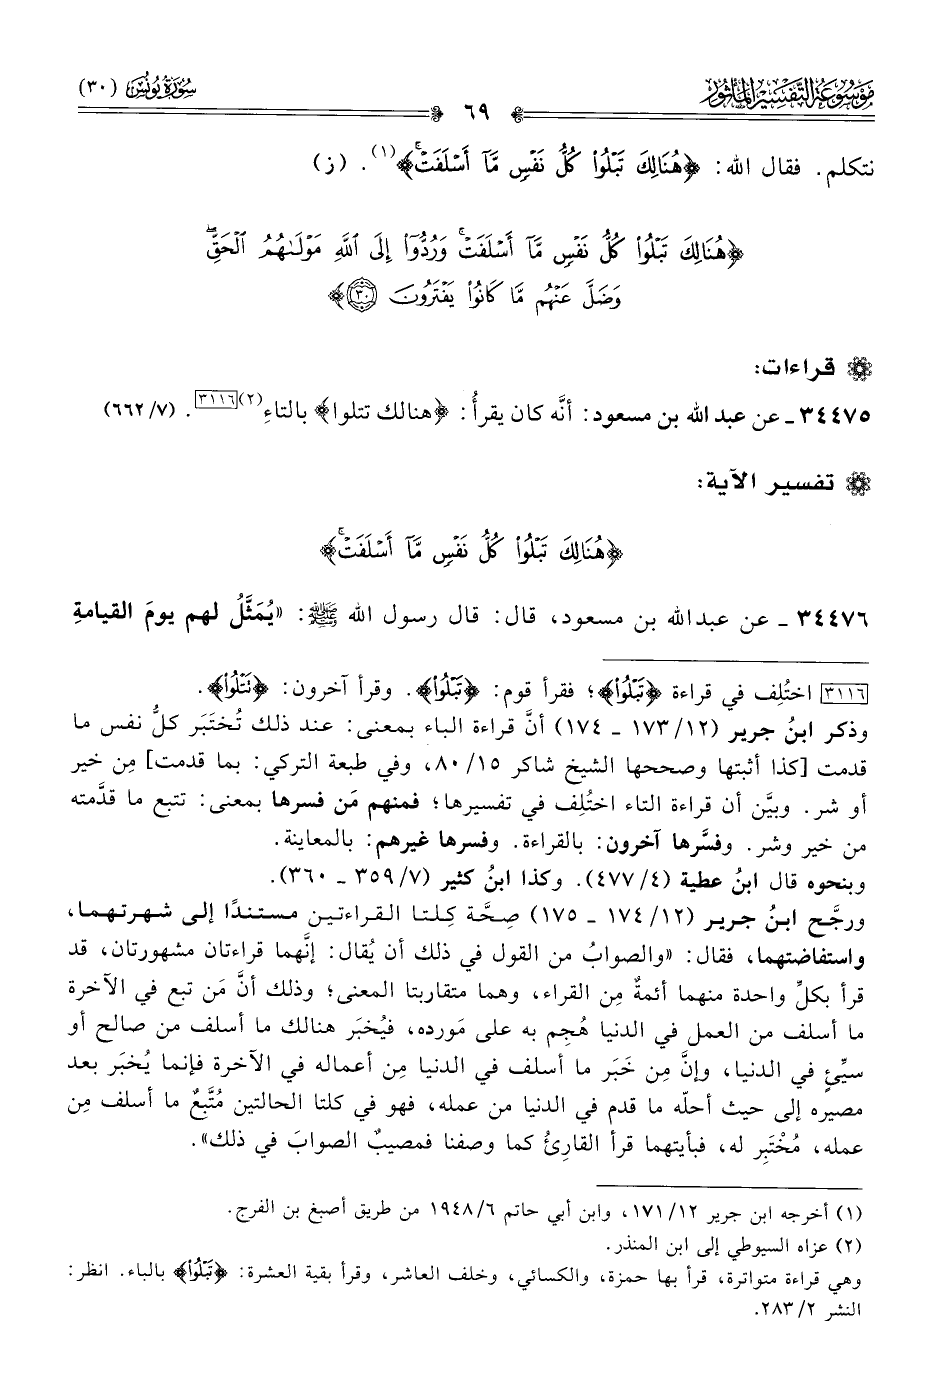 مَوْسُوعَة التَّفْسِير المَأْثُور
٦٩
سُورَةُ يُونُسَ (٣٠)
نتكلم. فقال الله: ﴿هُنَالِكَ تَبْلُوا۟ كُلُّ نَفْسٍ مَّآ أَسْلَفَتْ﴾(١). (ز)
﴿هُنَالِكَ تَبْلُوا۟ كُلُّ نَفْسٍ مَّآ أَسْلَفَتْ وَرُدُّوٓا۟ إِلَى ٱللَّهِ مَوْلَىٰهُمُ ٱلْحَقِّ
وَضَلَّ عَنْهُم مَّا كَانُوا۟ يَفْتَرُونَ ٣٠﴾
قراءات:
٣٤٤٧٥ ـ عن عبد الله بن مسعود: أنَّه كان يقرأُ: ﴿هنالك تتلوا﴾ بالتاءِ(٢)[٣١١٦]. (٧/ ٦٦٢)
تفسير الآية:
﴿هُنَالِكَ تَبْلُوا۟ كُلُّ نَفْسٍ مَّآ أَسْلَفَتْ﴾
٣٤٤٧٦ ـ عن عبدالله بن مسعود، قال: قال رسول الله ﷺ: «يُمَثَّلُ لهم يومَ القيامةِ
[٣١١٦] اختُلِف في قراءة ﴿تَبْلُوا۟﴾؛ فقرأ قوم: ﴿تَبْلُوا۟﴾. وقرأ آخرون: ﴿تَتْلُوا۟﴾.
وذكر ابنُ جرير (١٢/ ١٧٣ ـ ١٧٤) أنَّ قراءة الباء بمعنى: عند ذلك تُختَبَر كلُّ نفس ما
قدمت [كذا أثبتها وصححها الشيخ شاكر ١٥/ ٨٠، وفي طبعة التركي: بما قدمت] مِن خير
أو شر. وبيَّن أن قراءة التاء اختُلِف في تفسيرها؛ فمنهم مَن فسرها بمعنى: تتبع ما قدَّمته
من خير وشر. وفسَّرها آخرون: بالقراءة. وفسرها غيرهم: بالمعاينة.
وبنحوه قال ابنُ عطية (٤/ ٤٧٧). وكذا ابنُ كثير (٧/ ٣٥٩ ـ ٣٦٠).
ورجَّح ابنُ جرير (١٢/ ١٧٤ ـ ١٧٥) صِحَّة كِلتا القراءتين مستندًا إلى شهرتهما،
واستفاضتهما، فقال: «والصوابُ من القول في ذلك أن يُقال: إنَّهما قراءتان مشهورتان، قد
قرأ بكلِّ واحدة منهما أئمةٌ مِن القراء، وهما متقاربتا المعنى؛ وذلك أنَّ مَن تبع في الآخرة
ما أسلف من العمل في الدنيا هُجِم به على مَورده، فيُخبَر هنالك ما أسلف من صالح أو
سيِّئٍ في الدنيا، وإنَّ مِن خَبَر ما أسلف في الدنيا مِن أعماله في الآخرة فإنما يُخبَر بعد
مصيره إلى حيث أحلّه ما قدم في الدنيا من عمله، فهو في كلتا الحالتين مُتَّبِعٌ ما أسلف مِن
عمله، مُخْتَبِر له، فبأيتهما قرأ القارِئُ كما وصفنا فمصيبٌ الصوابَ في ذلك».
(١) أخرجه ابن جرير ١٢/ ١٧١، وابن أبي حاتم ٦/ ١٩٤٨ من طريق أصبغ بن الفرج.
(٢) عزاه السيوطي إلى ابن المنذر.
وهي قراءة متواترة، قرأ بها حمزة، والكسائي، وخلف العاشر، وقرأ بقية العشرة: ﴿تَبْلُوا۟﴾ بالباء. انظر:
النشر ٢/ ٢٨٣.